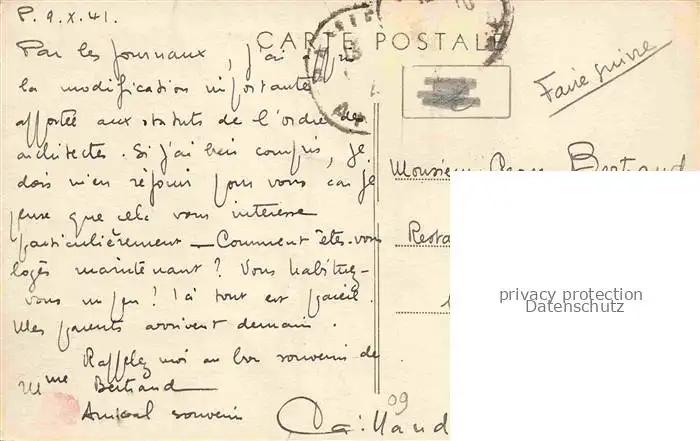 P. 9. X. 41.
CARTE POSTALE
Par les journaux, j'ai appris
la modification importante
apportée aux statuts de l'ordre des
architectes. Si j'ai bien compris, je
dois m'en réjouir pour vous car je
pense que cela vous intéresse
particulièrement — Comment êtes-vous
logés maintenant ? Vous habituez-
vous un peu ? Ici tout est pareil.
Mes parents arrivent demain.
Rappelez moi au bon souvenir de
Mme Bertrand
Amical souvenir
Caillaud
09
Faire suivre
Monsieur Bertrand
Resta
privacy protection
Datenschutz